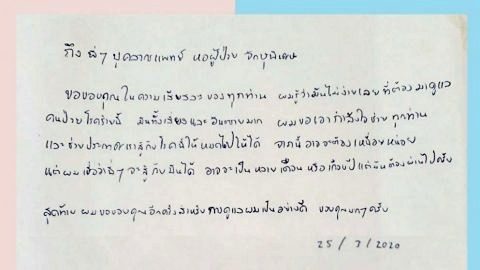 ถึง พี่ๆ บุคลากรแพทย์ หอผู้ป่วย จักษุพิเศษ
ขอขอบคุณในความเสียสละของทุกท่าน ผมรู้ว่ามันไม่ง่ายเลยที่ต้องมาดูแล
คนป่วยโรคร้ายนี้ มันทั้งเสี่ยงและอันตรายมาก ผมขอเอากำลังใจช่วยทุกท่าน
และช่วยประเทศเราสู้กับโรคนี้ให้หมดไปให้ได้ จากนี้ อาจจะต้องเหนื่อยหน่อย
แต่ผมเชื่อว่าพี่ๆ จะสู้กับมันได้ อาจจะเป็นหลายเดือน หรือเกือบปีแต่มันต้องผ่านไปครับ
สุดท้าย ผมขอขอบคุณอีกครั้งสำหรับการดูแลผมเป็นอย่างดี ขอบคุณมากๆครับ
25 / 3 / 2020